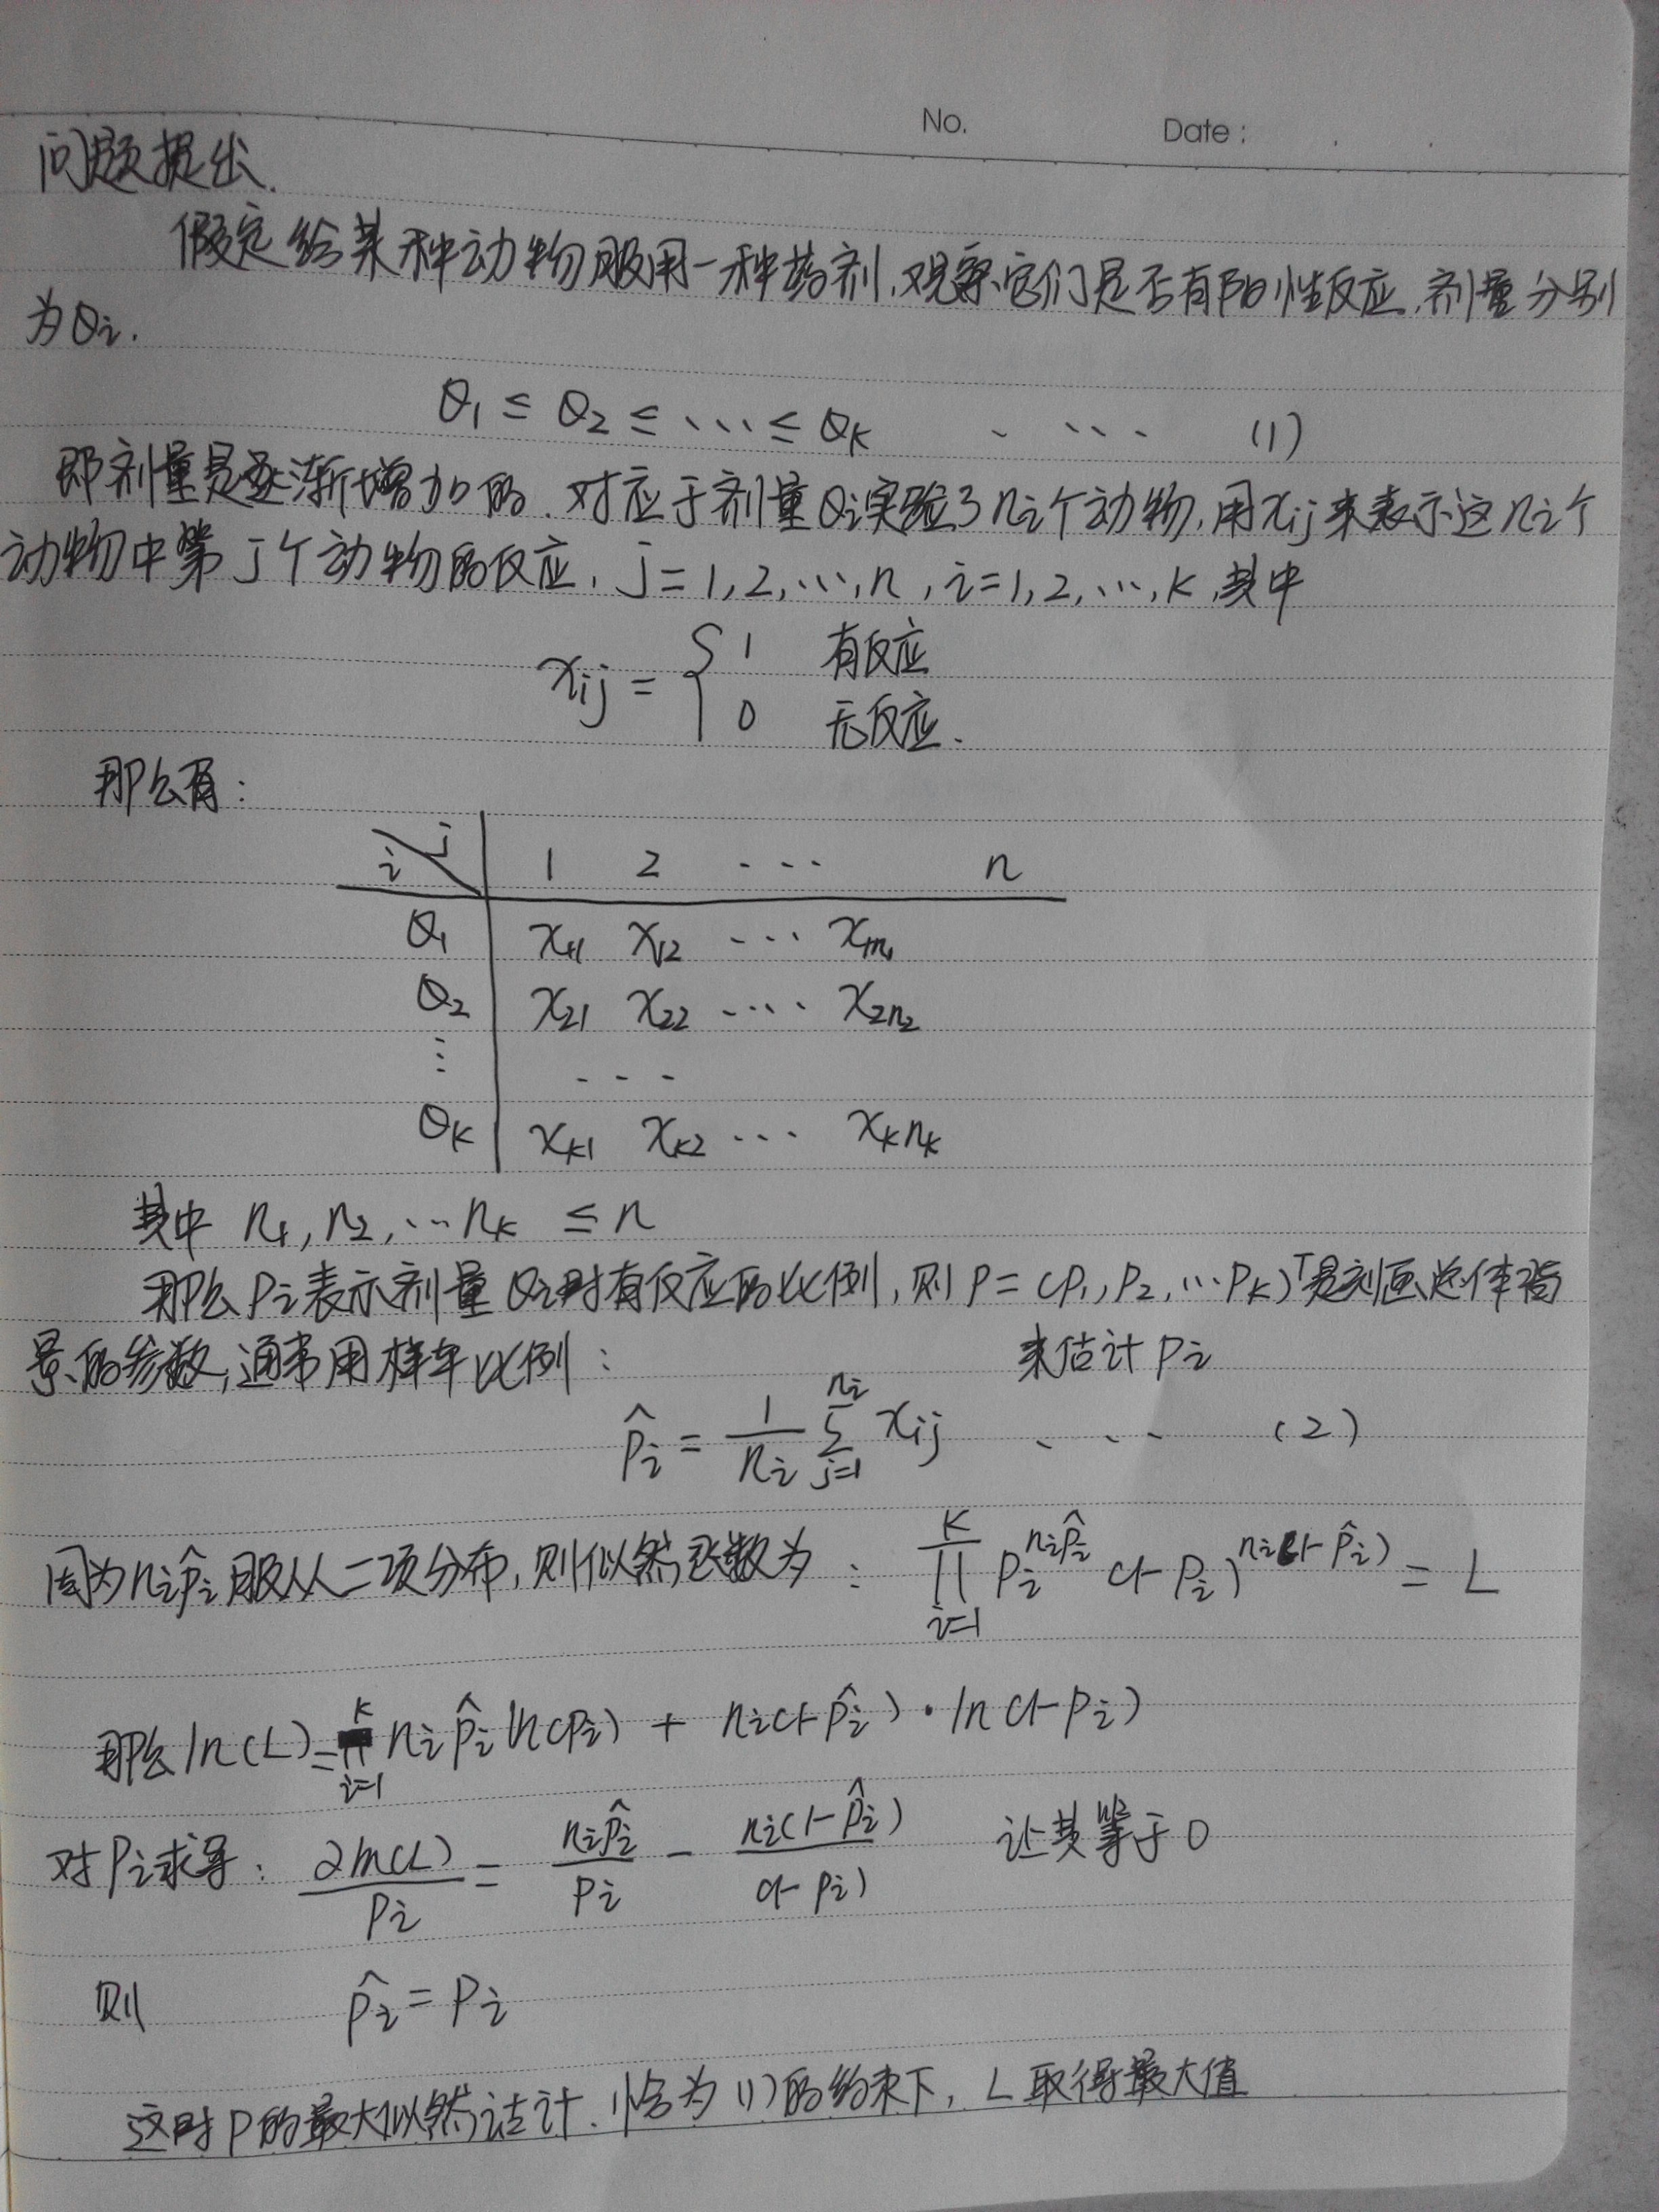 No. Date:
问题提出.
假定给某种动物服用一种药剂,观察它们是否有阳性反应,剂量分别
为θi.
θ1 ≤ θ2 ≤ ... ≤ θk ... (1)
即剂量是逐渐增加的.对应于剂量θi实验了ni个动物,用xij来表示这ni个
动物中第j个动物的反应, j=1,2,...,n, i=1,2,...,k,其中
xij = { 1 有反应
0 无反应.
那么有:
i \ j 1 2 ... n
θ1 x11 x12 ... x1n1
θ2 x21 x22 ... x2n2
⋮ ...
θk xk1 xk2 ... xknk
其中 n1, n2, ... nk ≤ n
那么Pi表示剂量θi时有反应的比例,则P=(P1, P2, ...Pk)ᵀ是刻画总体背
景的参数,通常用样本比例: 来估计Pi
p̂i = 1/ni ∑_{j=1}^{ni} xij ... (2)
因为ni p̂i服从二项分布,则似然函数为: ∏_{i=1}^{K} Pi^{ni p̂i} (1-Pi)^{ni(1-p̂i)} = L
那么ln(L)=∏_{i=1}^{K} ni p̂i ln(Pi) + ni(1-p̂i)·ln(1-Pi)
对Pi求导: ∂ln(L)/Pi = ni p̂i/Pi - ni(1-p̂i)/(1-Pi) 让其等于0
则 p̂i = Pi
这时P的最大似然估计.恰为(1)的约束下, L取得最大值